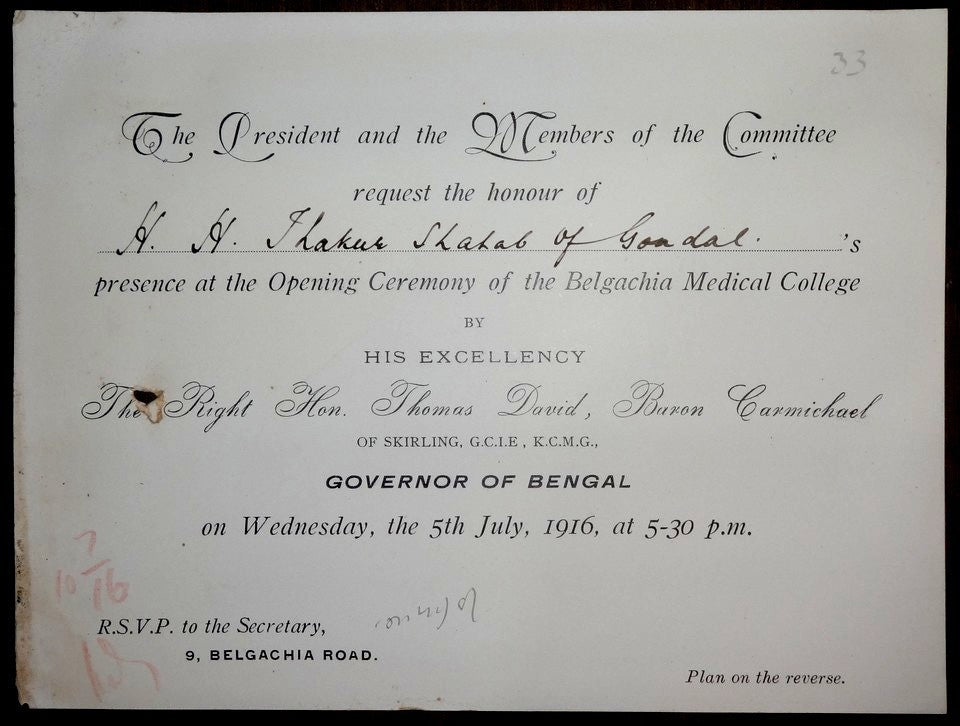 33
The President and the Members of the Committee
request the honour of
H. H. Thakur Shahab of Gondal. 's
presence at the Opening Ceremony of the Belgachia Medical College
BY
HIS EXCELLENCY
The Right Hon. Thomas David, Baron Carmichael
OF SKIRLING, G.C.I.E, K.C.M.G.,
GOVERNOR OF BENGAL
on Wednesday, the 5th July, 1916, at 5-30 p.m.
10 7/16
R.S.V.P. to the Secretary,
9, BELGACHIA ROAD.
Plan on the reverse.